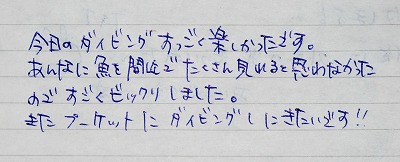 今日のダイビングすっごく楽しかったです。
あんなに魚を間近でたくさん見れると思わなかった
のですごくビックリしました。
またプーケットにダイビングしにきたいです!!